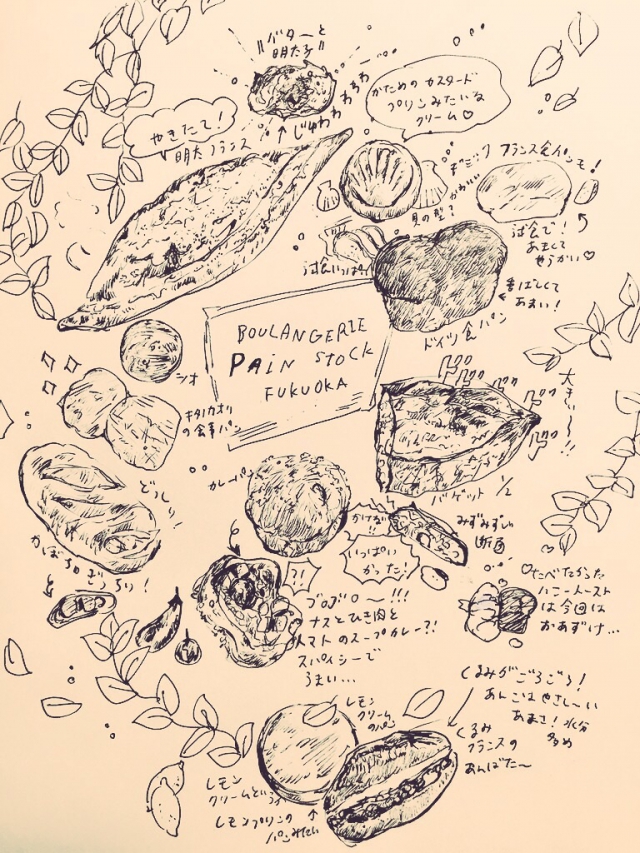 バターと
明太子
じゅわわわわ
かための カスタード
プリンみたいな
クリーム♡
やきたて!
明太フランス
フランス食パンも!
貝の型で
試食で!
あまくて
試食いっぱい
香ばしくて
あまい!
ドイツ食パン
BOULANGERIE
PAIN STOCK
FUKUOKA
シオ
キタノカオリ
の食事パン
ドドドドドド
大きい〜!!
バゲット 1/2
カレーパン
どっしり!
かぼちゃぎっちり!
かけが!!
いっぱい
かった!
みずみずしい
断面
?!
ブロブロ〜!!!
ナスとひき肉と
トマトのスープカレー?!
スパイシーで
うまい...
♡たべたかった
ハニートースト
は今回は
おあずけ...
くるみがごろごろ!
あんこはやさし〜い
あまさ!水分
多め
レモン
クリーム
のパン
くるみ
フランスの
あんばた〜
レモン
クリームというか
レモンプリンの
パンみたい